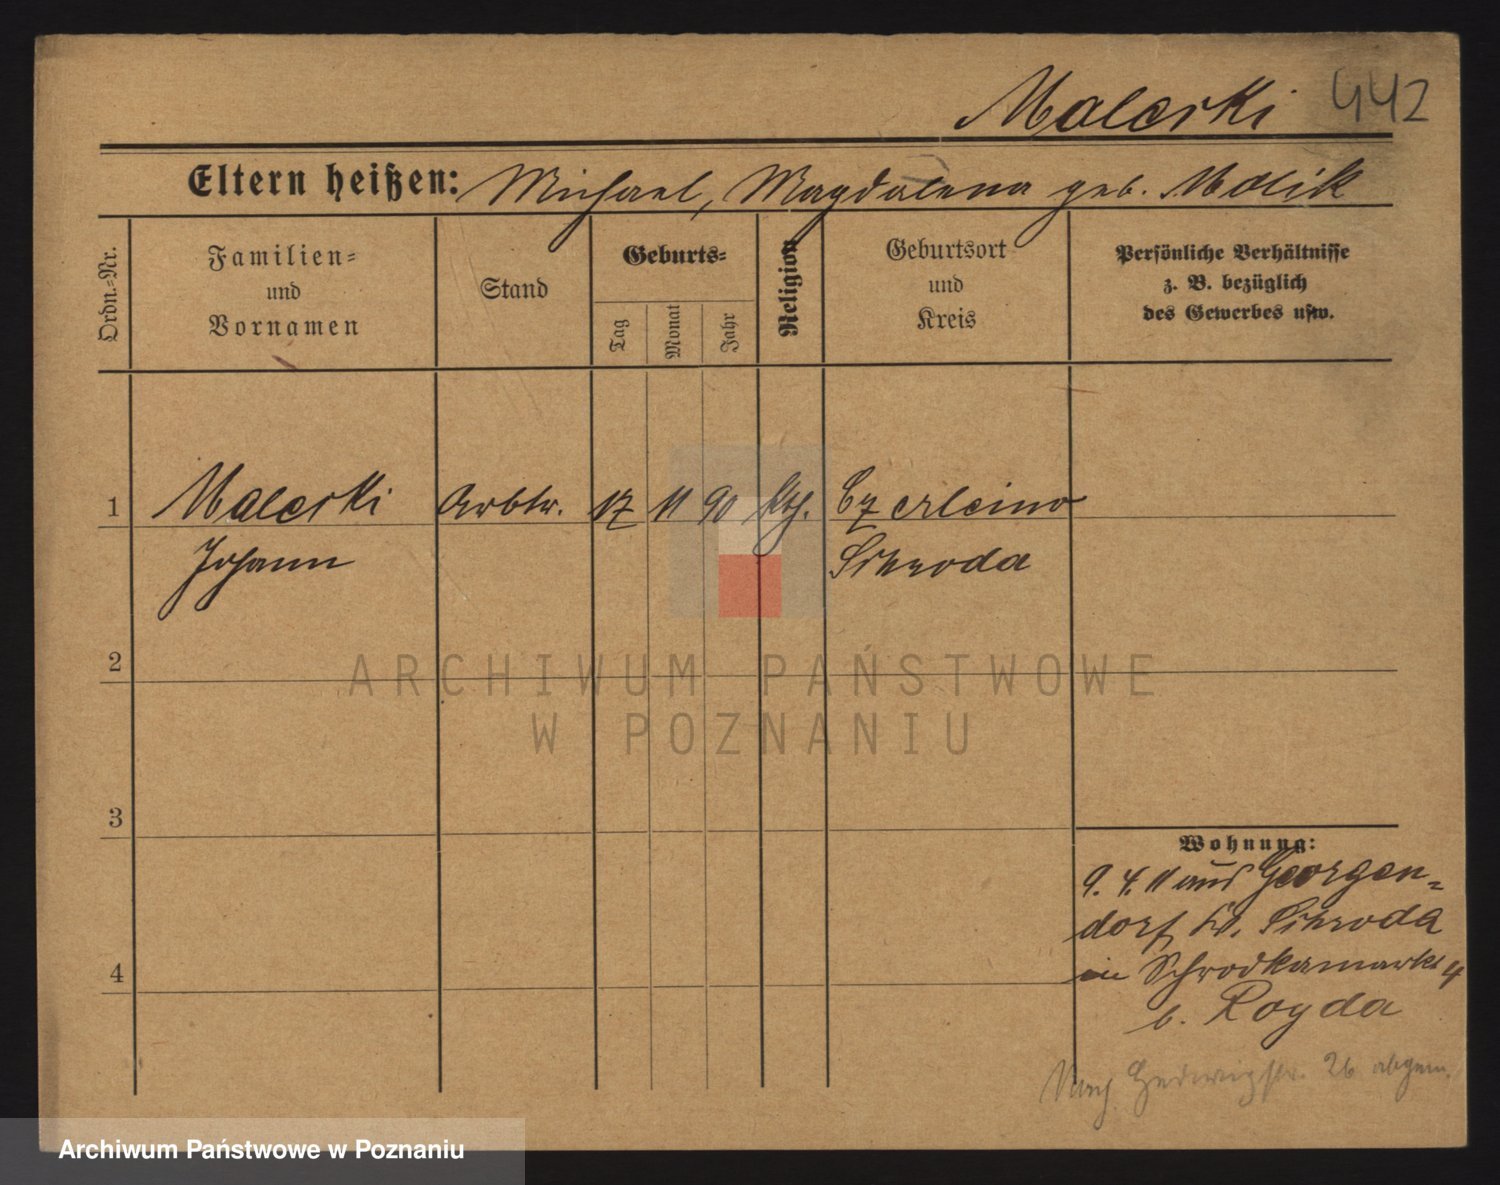 Malerski 442
Eltern heißen: Michael, Magdalena geb. Molik
Ordn.-Nr.
Familien-
und
Vornamen
Stand
Geburts-
Tag
Monat
Jahr
Religion
Geburtsort
und
Kreis
Persönliche Verhältnisse
z. B. bezüglich
des Gewerbes usw.
1 Malerski Arbtr. 17 11 90 kth. Czerleino
Johann Schroda
2
3
4
Wohnung:
9. 4. 11 aus Georgen-
dorf Kr. Schroda
in Schrodkamarkt 4
b. Rogda
Nach Hedwigstr. 26 abgem.
ARCHIWUM PAŃSTWOWE
W POZNANIU
Archiwum Państwowe w Poznaniu